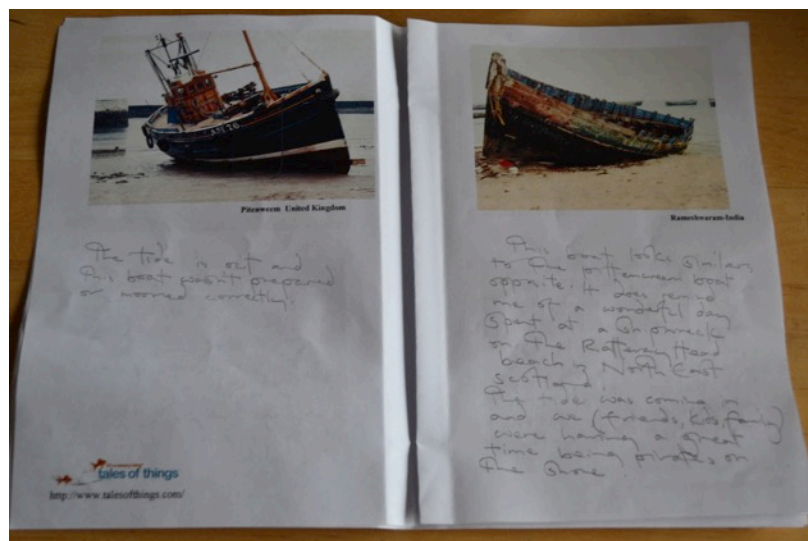 AH 76
Pitenweem United Kingdom
The tide is out and
this boat wasn't prepared
or moored correctly.
tales of things
http://www.talesofthings.com/
Rameshwaram-India
This boat looks similar
to the pittenweem boat
opposite. It does remind
me of a wonderful day
spent at a shipwreck
on the Rattray Head
beach in North East
Scotland.
The tide was coming in
and we (friends, kids, family)
were having a great
time being pirates on
the shore.